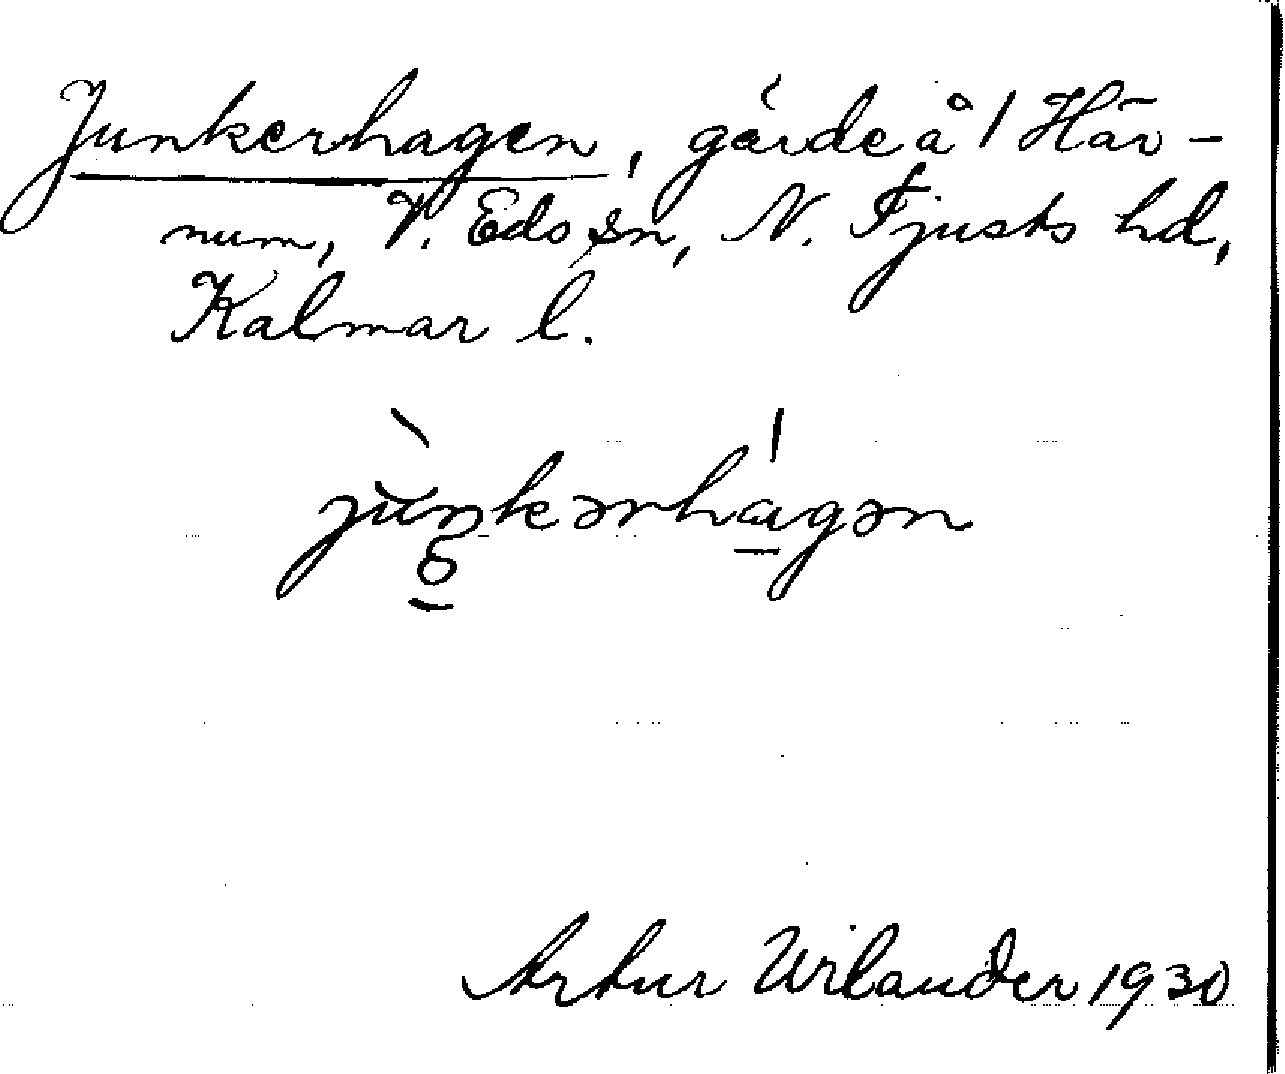 Junkerhagen, gärde å 1 Här-
num, V. Eds sn, N. Tjusts hd,
Kalmar l.
jùŋkərhágən
Artur Wilander 1930